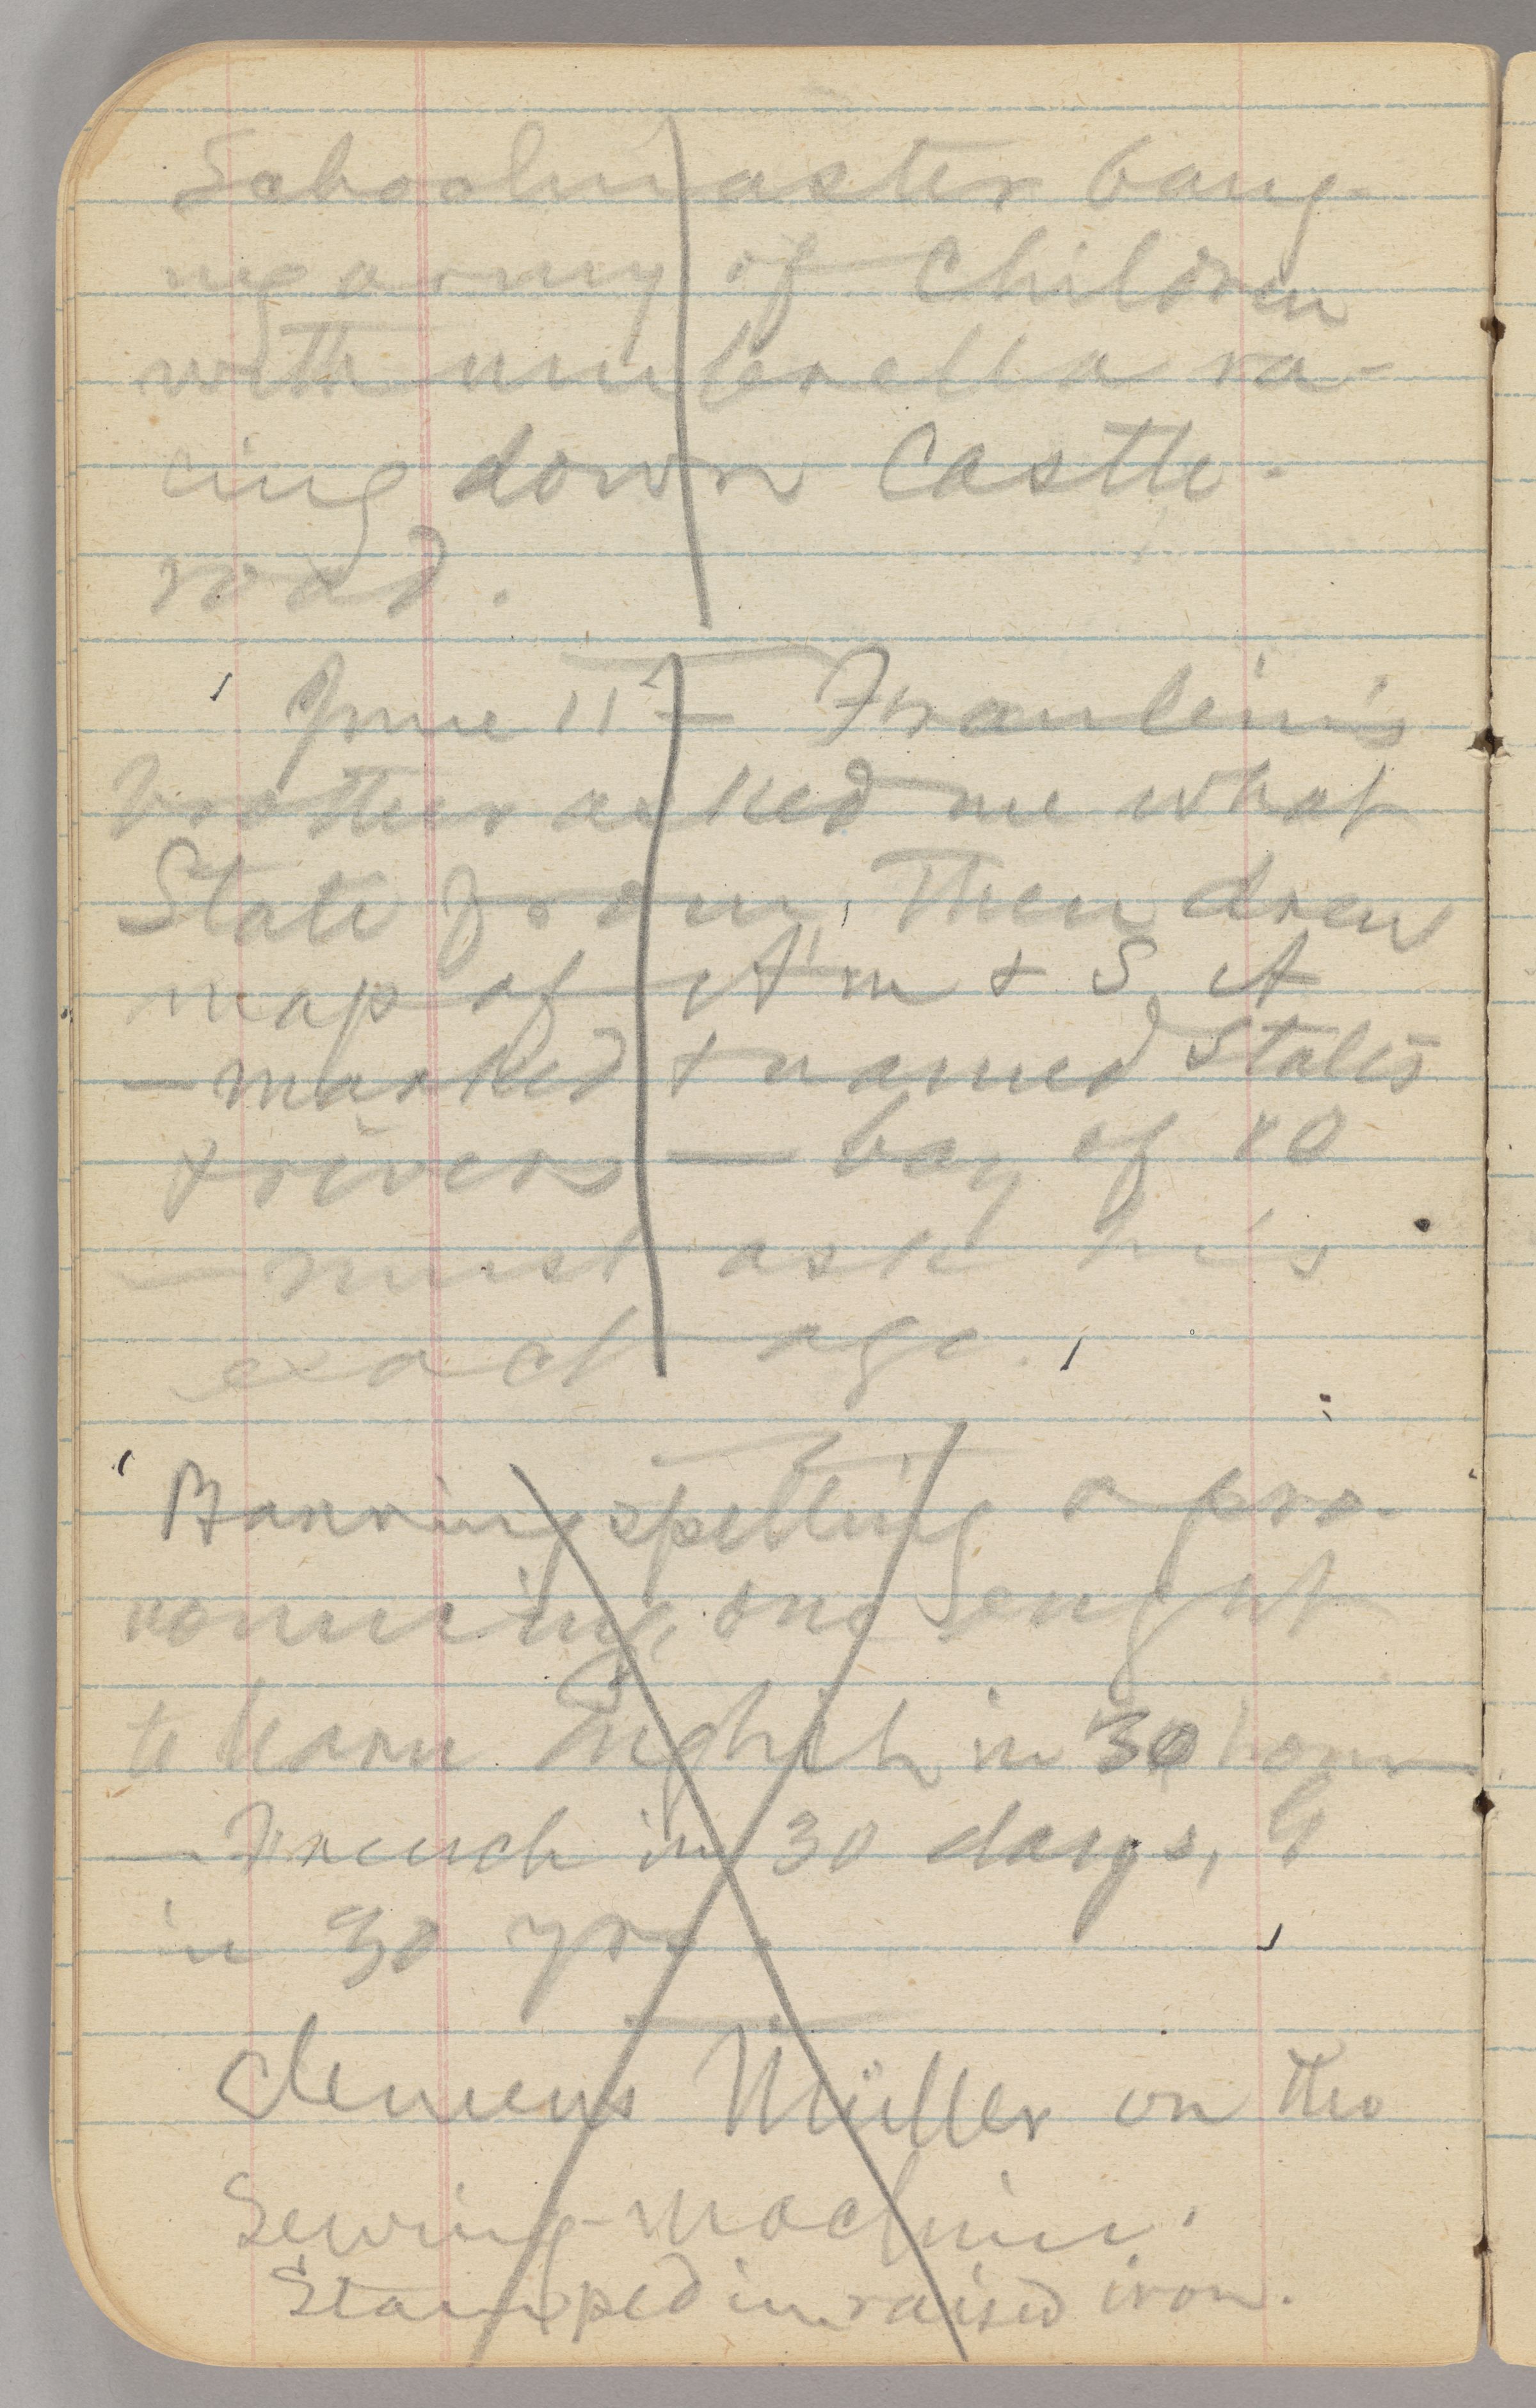 Schoolmaster bang-
ing army of children
with umbrella ra-
cing down Castle-
road.
June 11 — Fraulein's
brother asked me what
State from. Then drew
map of N Am & S. A
— marked & named States
& rivers — boy of 10
— must ask his
exact age.
Barring spelling & pro-
nouncing, one ought
to learn English in 30 hours
— French in 30 days, G
in 30 yrs.
Clemens Müller on the
Sewing-machine.
Stamped in raised iron.